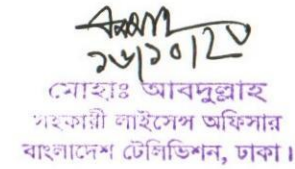 ১৬/১০/২০
মোহাঃ আবদুল্লাহ
সহকারী লাইসেন্স অফিসার
বাংলাদেশ টেলিভিশন, ঢাকা।